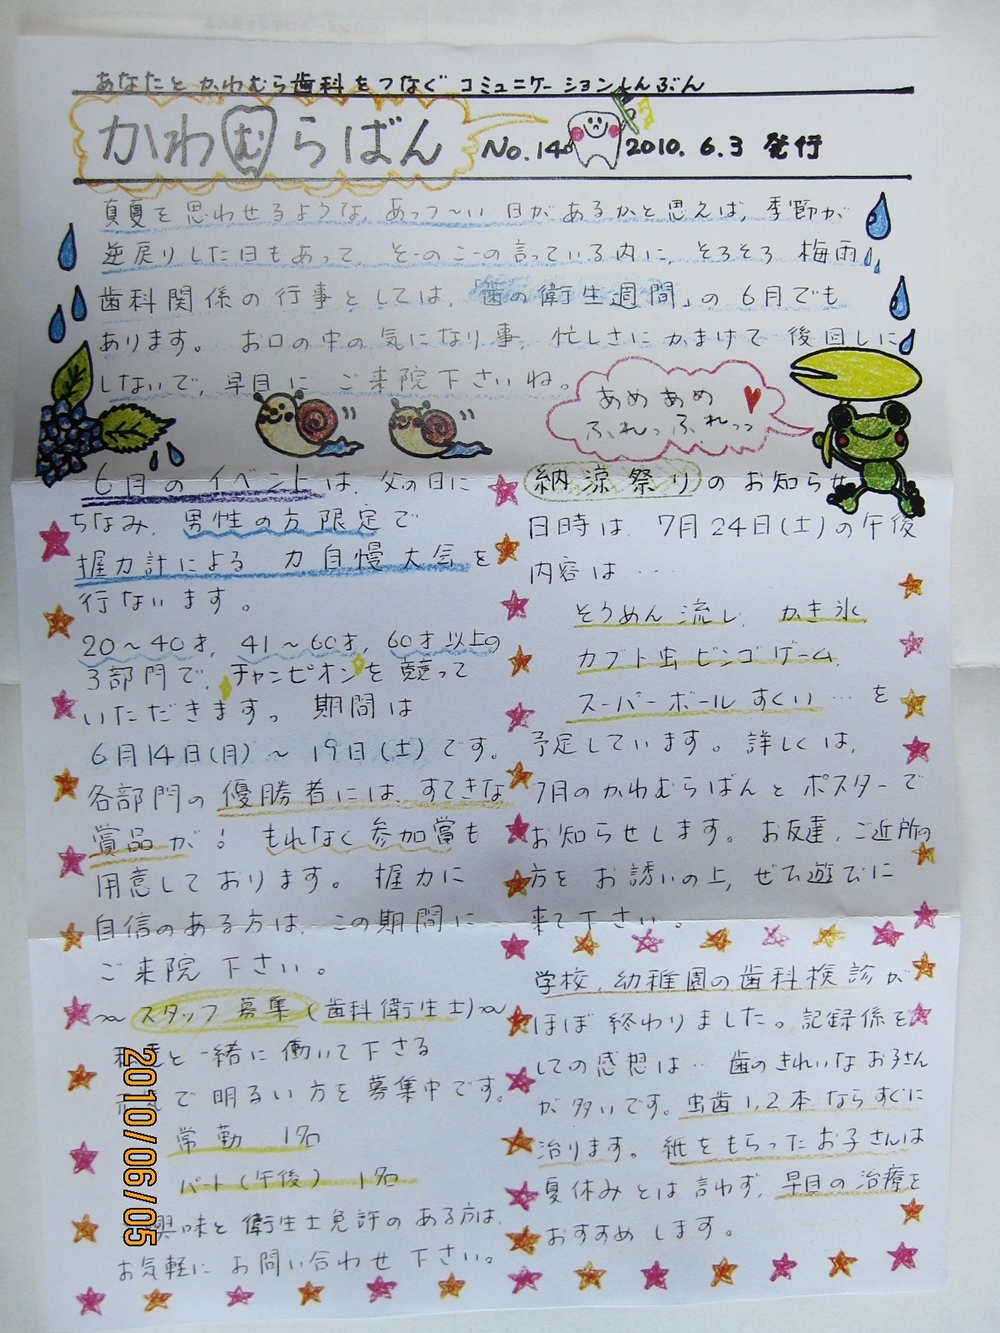 あなたと かわむら歯科をつなぐ コミュニケーションしんぶん
かわむらばん No.146 2010.6.3 発行
真夏を思わせるような、あっつ〜い日があるかと思えば、季節が
逆戻りした日もあって、そーのこーの言っている内に、そろそろ 梅雨。
歯科関係の行事としては、「歯の衛生週間」の6月でも
あります。 お口の中の気になり事、忙しさにかまけて後回しに
しないで、早目に ご来院下さいね。
あめあめ
ふれっふれっっ
6月のイベントは、父の日に
ちなみ、男性の方限定で
握力計による 力自慢大会を
行ないます。
20〜40才、41〜60才、60才以上の
3部門で、チャンピオンを競って
いただきます。 期間は
6月14日(月)〜19日(土)です。
各部門の優勝者には、すてきな
賞品が! もれなく参加賞も
用意しております。 握力に
自信のある方は、この期間に
ご来院 下さい。
〜スタッフ募集(歯科衛生士)〜
と一緒に働いて下さる
で明るい方を募集中です。
常勤 1名
パート(午後) 1名
興味と衛生士免許のある方は、
お気軽にお問い合わせ下さい。
納涼祭りのお知らせ
日時は、7月24日(土)の午後
内容は…
そうめん流し、かき氷
カブト虫ビンゴゲーム、
スーパーボールすくい…を
予定しています。詳しくは、
7月のかわむらばんとポスターで
お知らせします。お友達、ご近所の
方をお誘いの上、ぜひ遊びに
来て下さい。
学校、幼稚園の歯科検診が
ほぼ終わりました。記録係を
しての感想は…歯のきれいなお子さん
が多いです。虫歯1,2本ならすぐに
治ります。紙をもらったお子さんは
夏休みとは言わず、早目の治療を
おすすめします。
2010/06/05